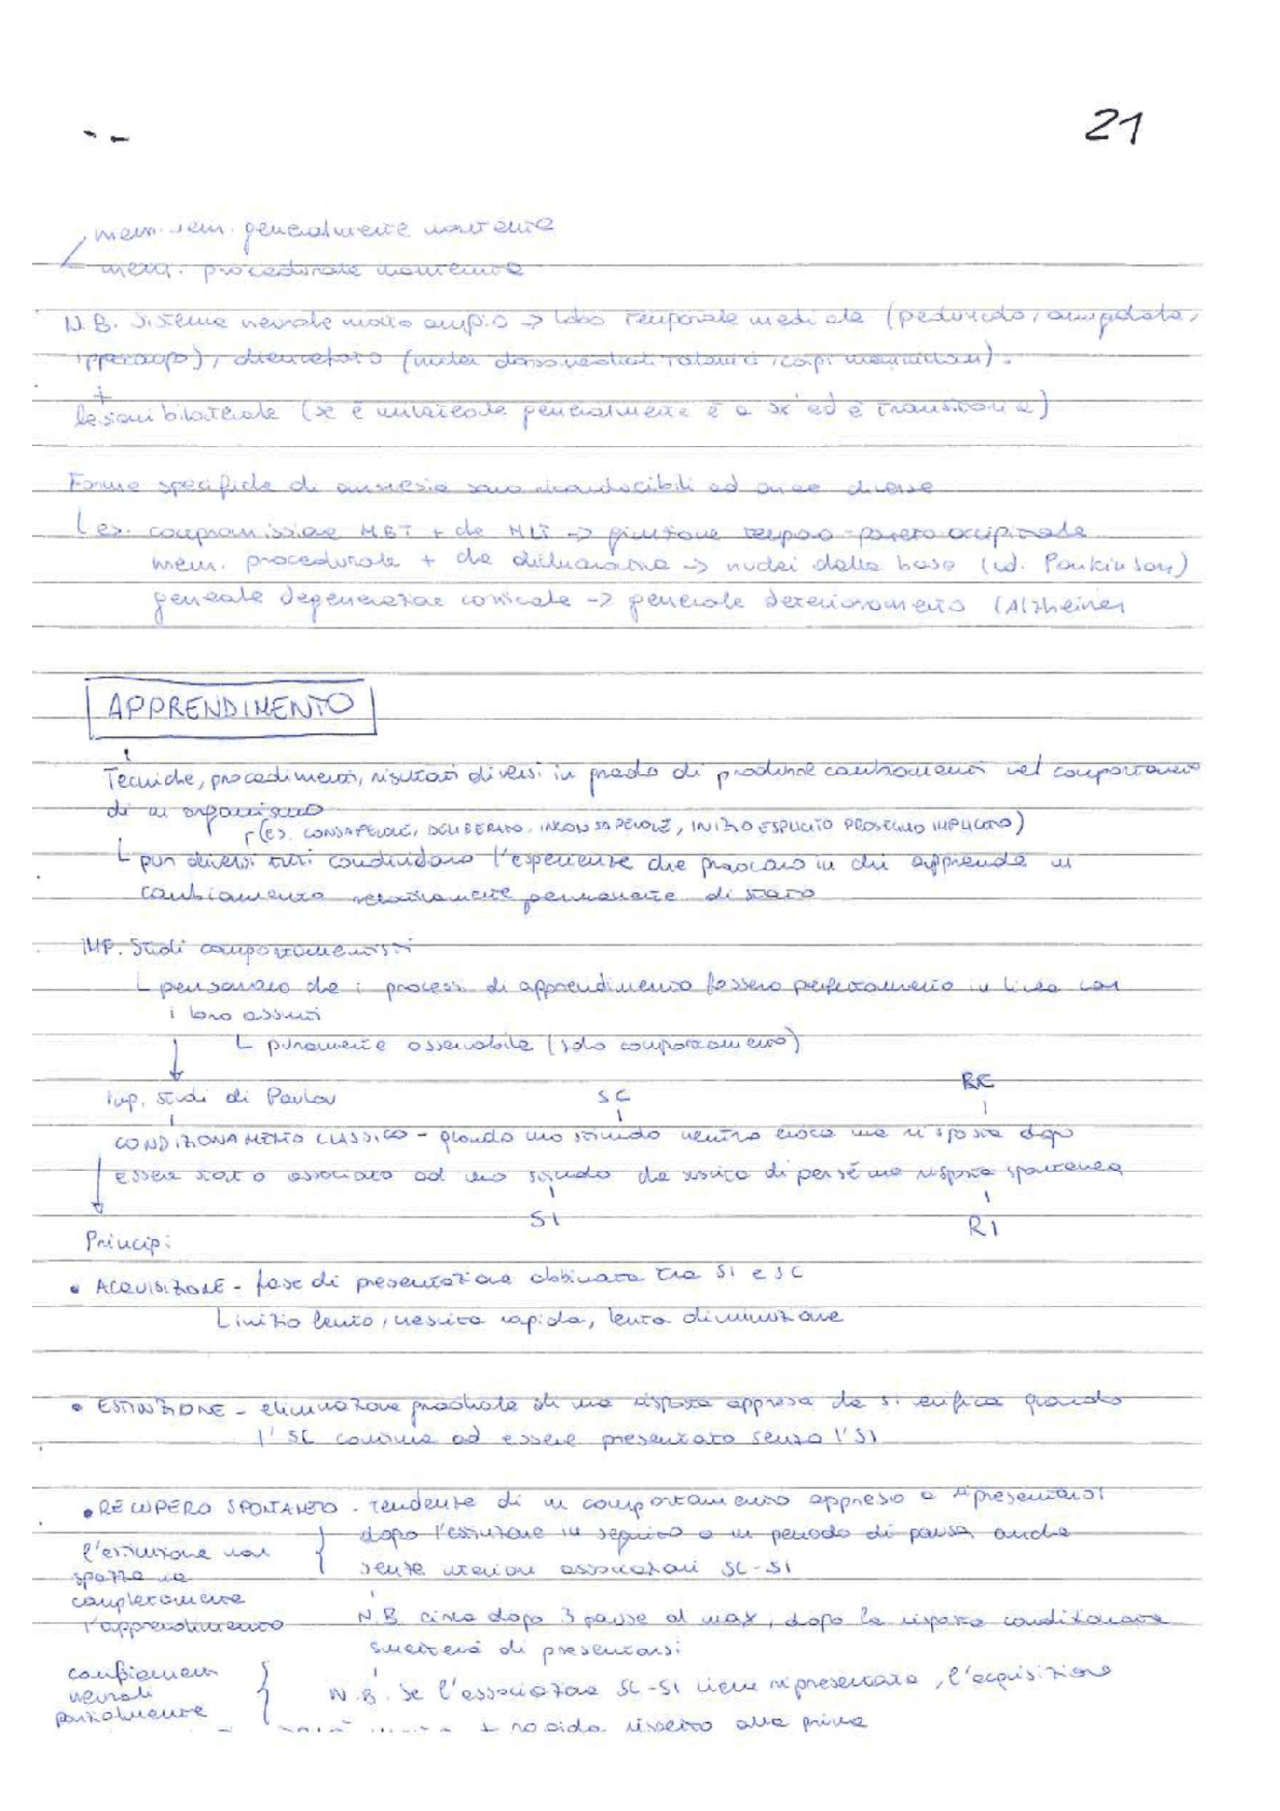 21
mem. sem. generalmente mantenuta
mem. procedurale mantenuta
N.B. Sistema neurale molto ampio -> lobo temporale mediale (peduncolo, amigdala,
ippocampo), diencefalo (nuclei dorsomediali talamici, corpi mammillari).
+
lesioni bilaterale (se è unilaterale generalmente è a sx ed è transitoria)
Forme specifiche di amnesia sono riconducibili ad aree diverse
(es. compromissione MBT + che MLT -> giunzione temporo-parieto occipitale
mem. procedurale + che dichiarativa -> nuclei della base (vd. Parkinson)
generale degenerazione corticale -> generale deterioramento (Alzheimer
APPRENDIMENTO
Tecniche, procedimenti, risultati diversi in grado di produrre cambiamenti nel comportamento
di un organismo
(es. CONSAPEVOLE, DELIBERATO, INCONSAPEVOLE, INIZIO ESPLICITO PROSEGUO IMPLICITO)
pur diversi tutti condividono l'esperienza che provocano in chi apprende un
cambiamento relativamente permanente di stato
IMP. Studi comportamentisti
pensavano che i processi di apprendimento fossero perfettamente in linea con
i loro assunti
puramente osservabile (solo comportamento)
RC
Imp. studi di Pavlov SC
CONDIZIONAMENTO CLASSICO - quando uno stimolo neutro evoca una risposta dopo
essere stato associato ad uno stimolo che suscita di per sé una risposta spontanea
SI RI
Principi
• ACQUISIZIONE - fase di presentazione abbinata tra SI e SC
inizio lento, crescita rapida, lenta diminuzione
• ESTINZIONE - eliminazione graduale di una risposta appresa che si verifica quando
l'SC continua ad essere presentato senza l'SI
• RECUPERO SPONTANEO - tendenza di un comportamento appreso a ripresentarsi
dopo l'estinzione in seguito a un periodo di pausa anche
senza ulteriori associazioni SC-SI
l'estinzione non
spazza via
completamente
l'apprendimento
N.B. circa dopo 3 pause al max, dopo la risposta condizionata
smetterà di presentarsi
N.B. Se l'associazione SC-SI viene ripresentata, l'acquisizione
+ rapida rispetto alla prima
cambiamenti
neurali
parzialmente